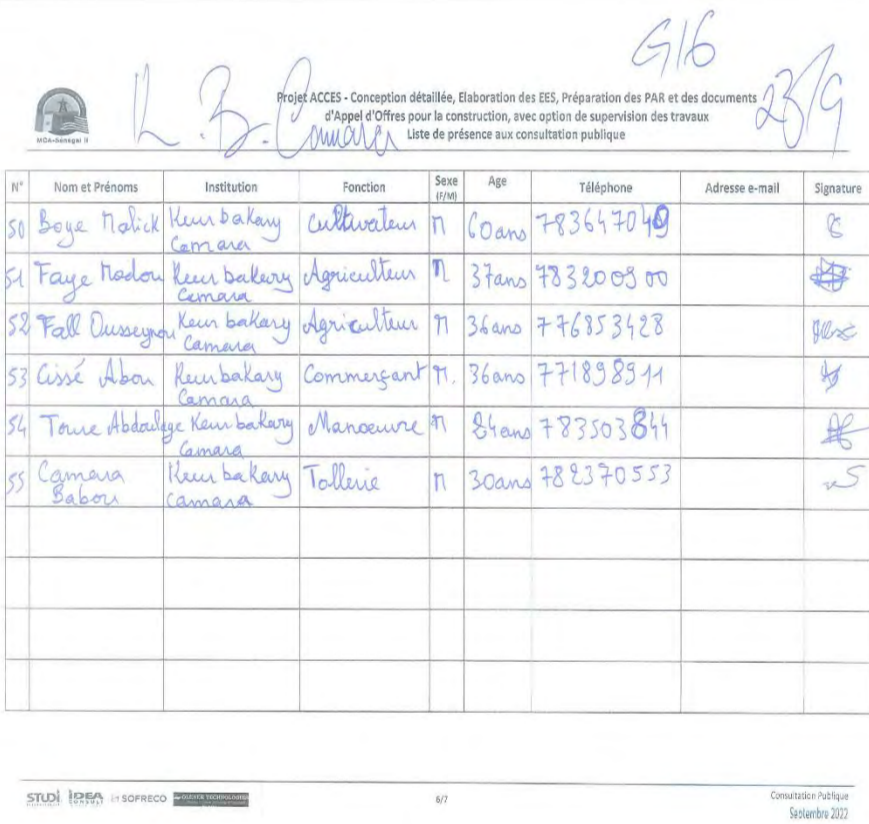 G16
K. B. Camara
23/9
MCA-Sénégal II
Projet ACCES - Conception détaillée, Elaboration des EES, Préparation des PAR et des documents
d'Appel d'Offres pour la construction, avec option de supervision des travaux
Liste de présence aux consultation publique
N° Nom et Prénoms Institution Fonction Sexe (F/M) Age Téléphone Adresse e-mail Signature
50 Boye Malick Keur bakary Camara Cultivateur M 60ans 783647049
51 Faye Modou Keur bakary Camara Agriculteur M 37ans 783200900
52 Fall Ousseynou Keur bakary Camara Agriculteur M 36ans 776853428
53 Cissé Abou Keur bakary Camara Commerçant M. 36ans 771898911
54 Toure Abdoulaye Keur bakary Camara Manoeuvre M 24ans 783503844
55 Camara Babou Keur bakary Camara Tollerie M 30ans 782370553
STUDI IDEA CONSULT SOFRECO
6/7
Consultation Publique
Septembre 2022